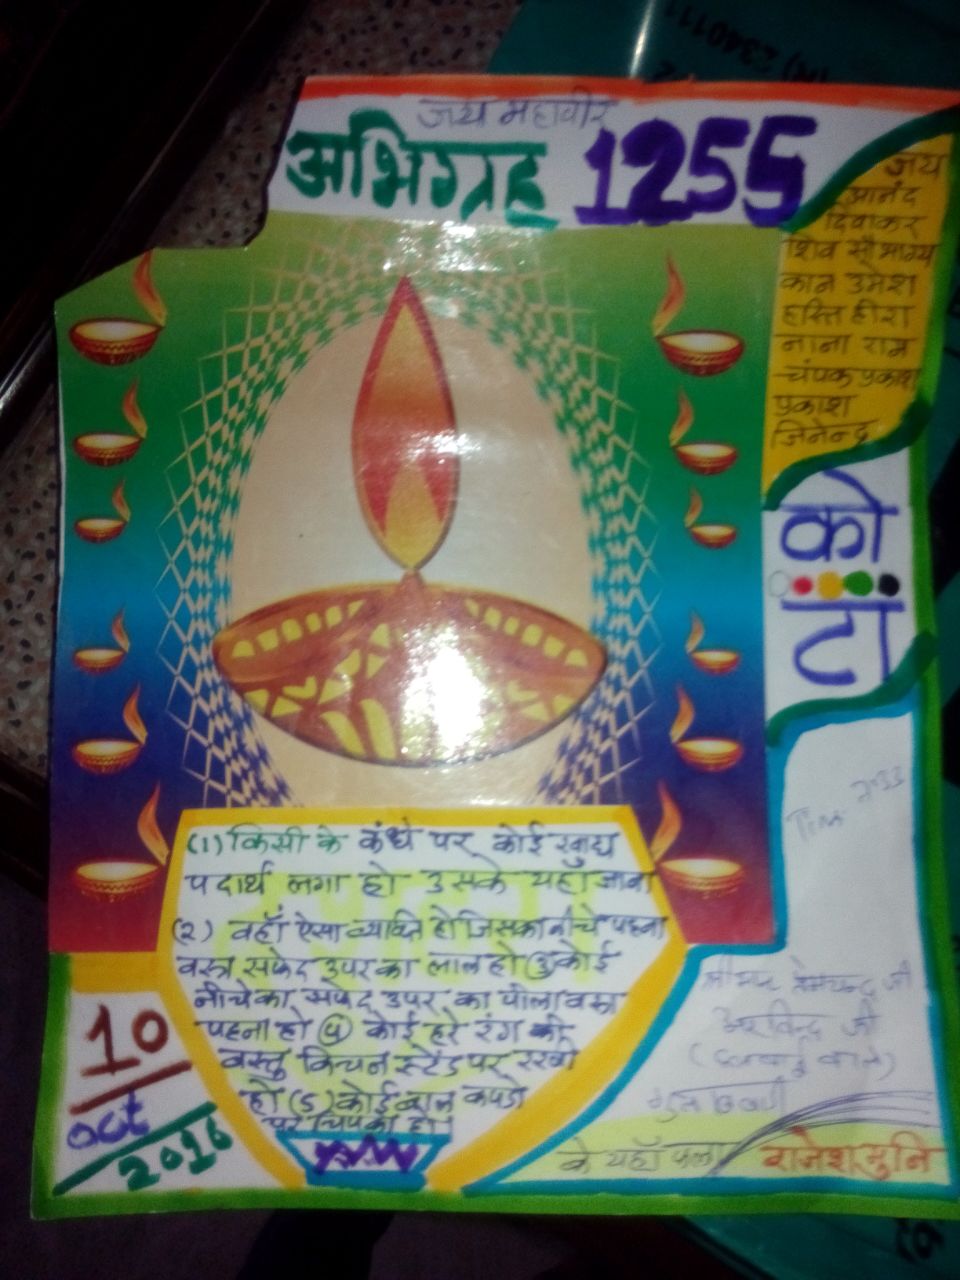 जय महावीर
अभिग्रह 1255
जय
आनंद
दिवाकर
शिव सौभाग्य
कान उमेश
हस्ति हीरा
नाना राम
चंपक प्रकाश
प्रकाश
जिनेन्द्र
को
टा
(1) किसी के कंधे पर कोई खाद्य
पदार्थ लगा हो उसके यहाँ जाना
(2) वहाँ ऐसा व्यक्ति हो जिसका नीचे पहना
वस्त्र सफेद उपर का लाल हो ③ कोई
नीचे का सफेद उपर का पीला वस्त्र
पहना हो ④ कोई हरे रंग की
वस्तु किचन स्टैंड पर रखी
हो (5) कोई बाल कपडो
पर चिपका हो।
10
oct
2016
जी
अरविन्द जी
के यहाँ फला
राजेश मुनि